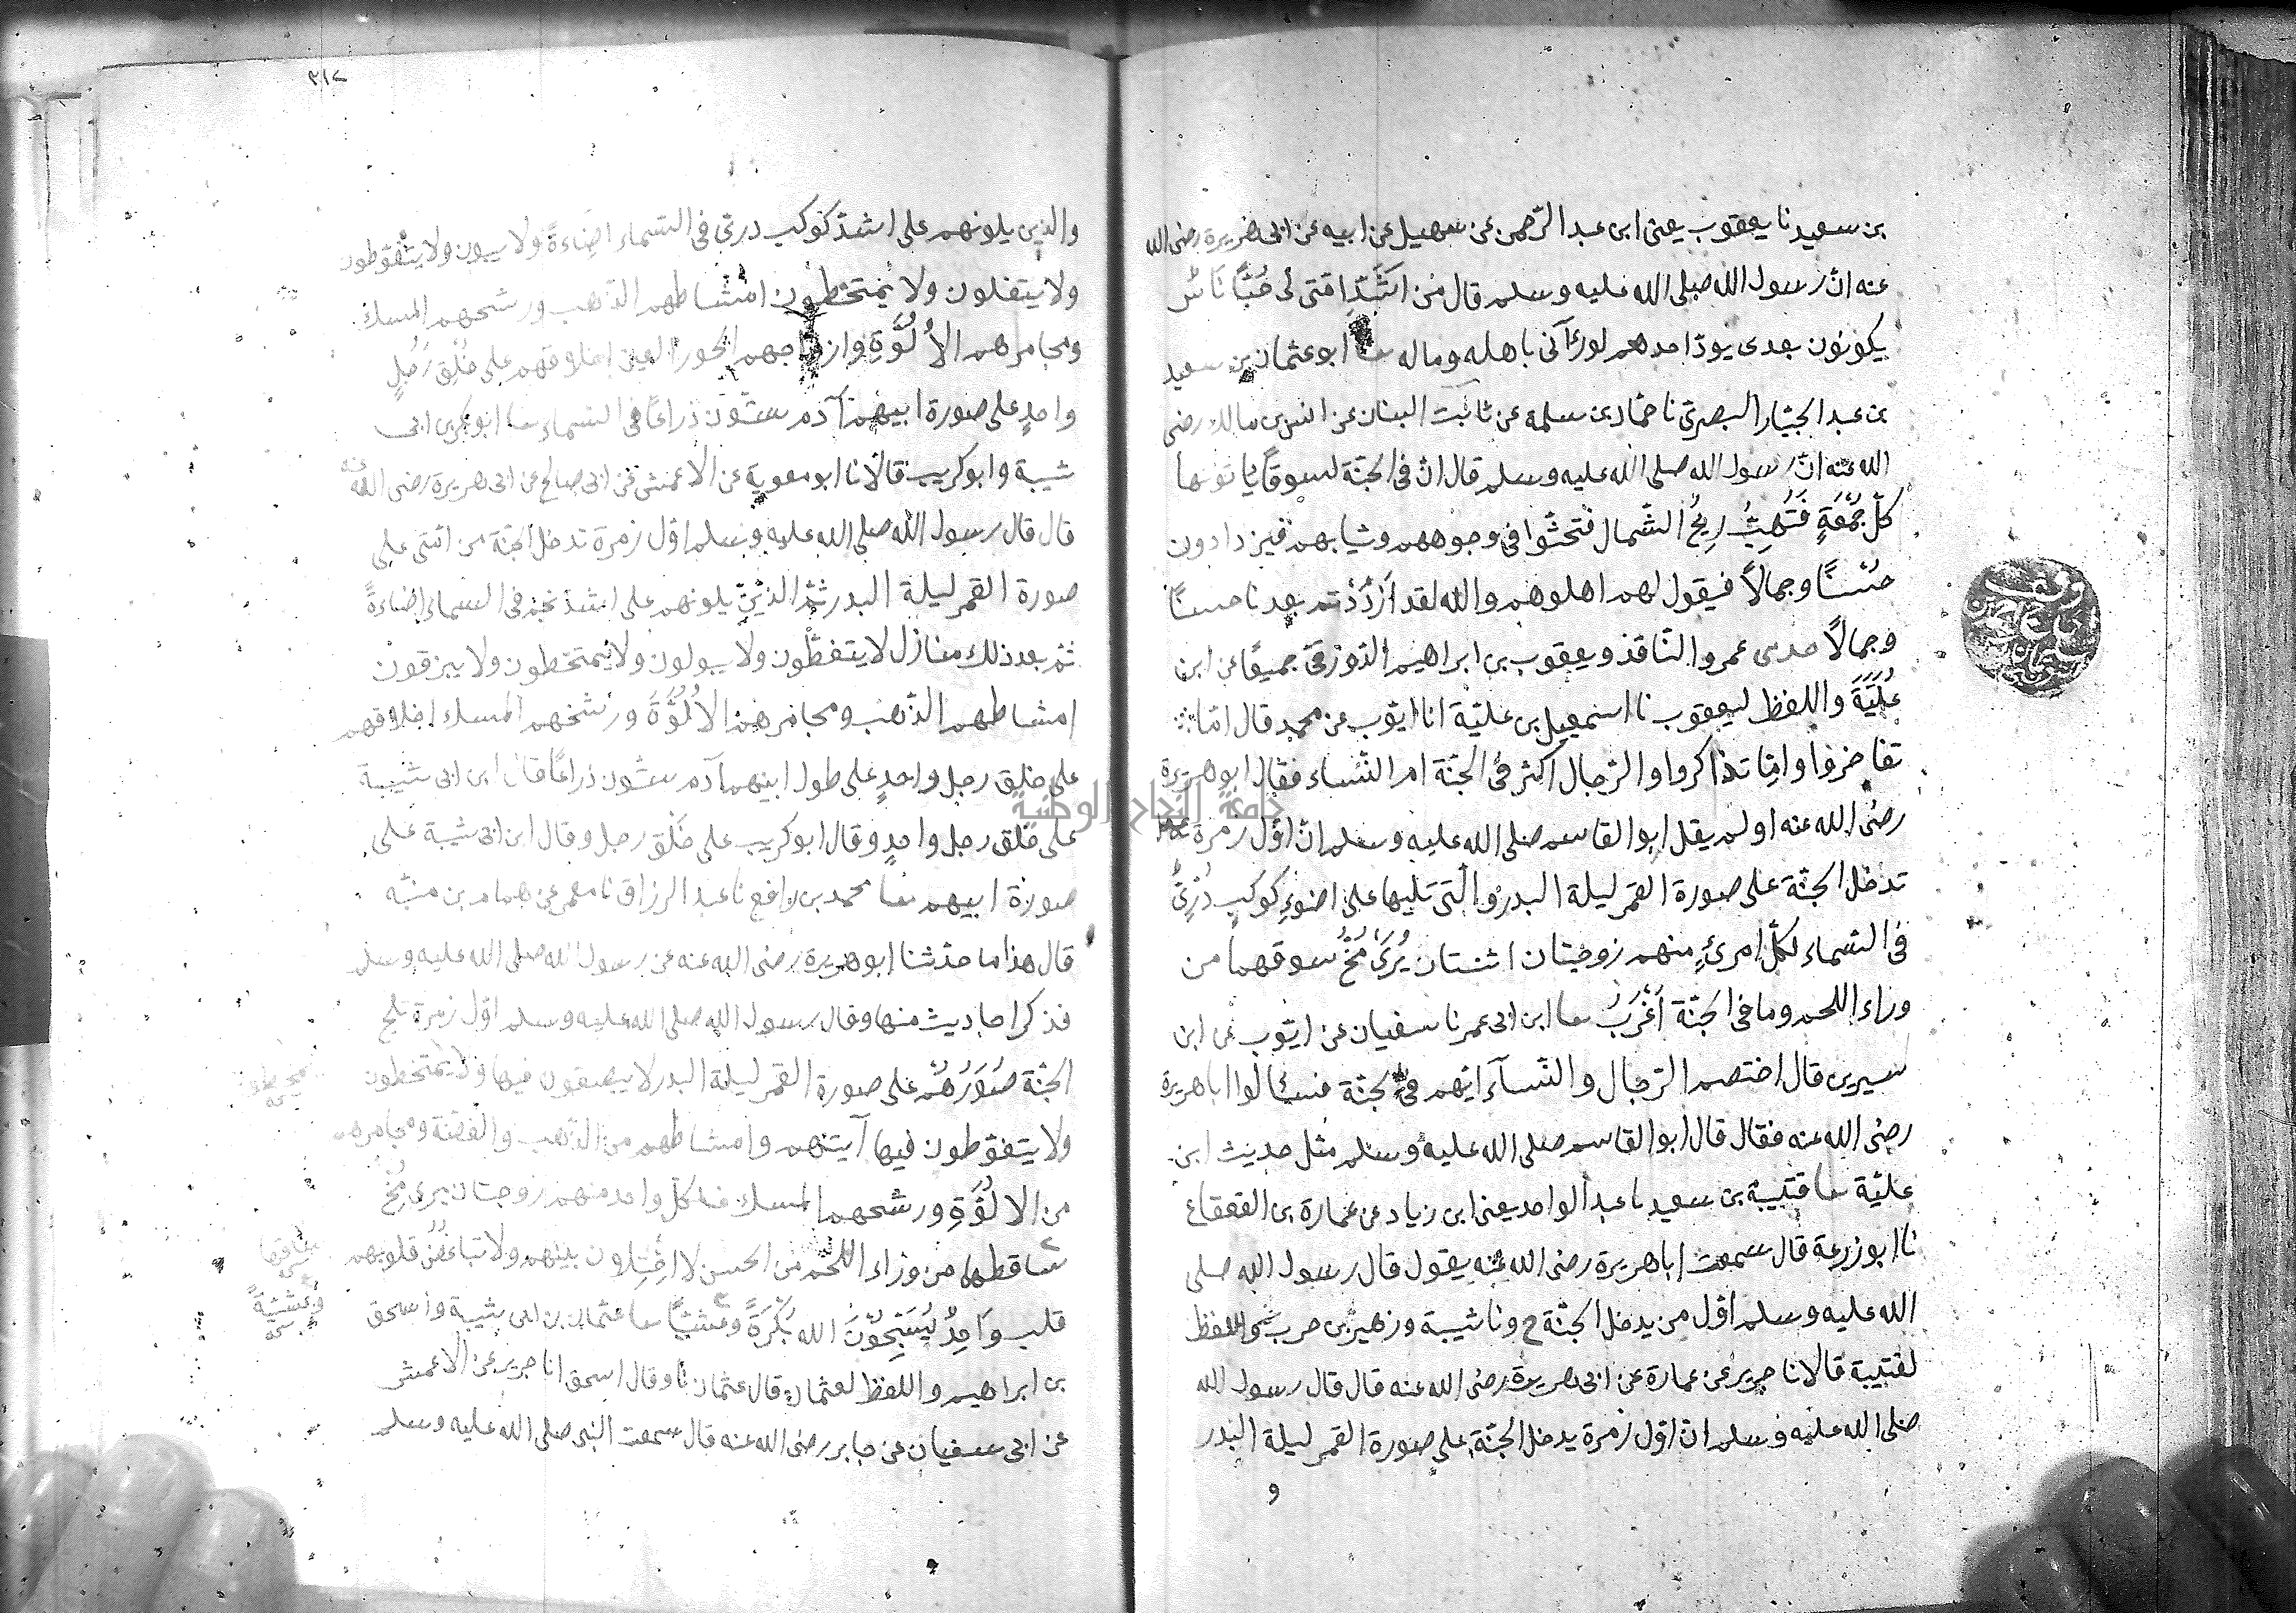 بن سعيد نا يعقوب يعنى ابن عبد الرّحمن عن سهيل عن ابيه عن ابى هريرة رضى الله
عنه انّ رسول الله صلى الله عليه وسلم قال من اشدّ امتى لى حبًّا ناس
يكونون بعدى يودّ احدهم لو رآنى باهله وماله ابو عثمان بن سعيد
بن عبد الجبّار البصرىّ نا حمّاد بن سلمة عن ثابت البنان عن انس بن مالك رضى
الله عنه انّ رسول الله صلى الله عليه وسلم قال انّ فى الجنّة لسوقًا ياتونها
كلّ جمُعَةٍ فَتَهِبُّ رِيحُ الشّمال فتحثوا فى وجوههم وثيابهم فيزدادون
حُسْنًا وجمالًا فيقول لهم اهلوهم والله لقد ازْدَدْتم بعدنا حسنًا
وجمالًا حدثنى عمرو النّاقد ويعقوب بن ابراهيم الدّورقىّ جميعًا عن ابن
عُلَيَّةَ واللفظ ليعقوب نا اسمعيل بن عليّة انا ايّوب عن محمد قال امّا
تفاخروا وامّا تذاكروا والرّجال اكثر فى الجنّة ام النّساء فقال ابو هريرة
رضى الله عنه اولم يقل ابو القاسم صلى الله عليه وسلم انّ اوّل زمرة
تدخل الجنّة على صورة القمر ليلة البدر والّتى تليها على اضوءِ كوكبٍ دُرِّىٍّ
فى السّماء لكلّ امرئٍ منهم زوجتان اثنتان يُرَى مُخُّ سوقهما من
وراء اللحم وما فى الجنّة اَعْزَبُ ابن ابى عمر نا سفيان عن ايّوب عن ابن
سيرين قال اختصم الرّجال والنّسآء ايّهم فى الجنّة فسئالوا ابا هريرة
رضى الله عنه فقال قال ابو القاسم صلى الله عليه وسلم مثل حديث ابن
عليّة قتيبة بن سعيد نا عبد الواحد يعنى ابن زياد عن عمارة بن القعقاع
نا ابو زرعة قال سمعت ابا هريرة رضى الله عنه يقول قال رسول الله صلى
الله عليه وسلم اوّل من يدخل الجنّة ح ونا شيبة وزهير بن حرب واللفظ
لقتيبة قالا نا جرير عن عمارة عن ابى هريرة رضى الله عنه قال قال رسول الله
صلى الله عليه وسلم انّ اوّل زمرة يدخل الجنّة على صورة القمر ليلة البدر
و
٣١٧
والذين يلونهم على اشدّ كوكب درىّ فى السّماء اضاءةً ولا يبولون ولا يتغوّطون
ولا يتفلون ولا يمتخطون امشاطهم الذّهب ورشحهم المسك
ومجامرهم الأُلُوَّةِ وازواجهم الحور العين اخلاقهم على خُلُق رَجُلٍ
واحدٍ على صورة ابيهم آدم ستّون ذراعًا فى السّماء ابو بكر بن ابى
شيبة وابو كريب قالا نا ابو معوية عن الاعمش عن ابى صالح عن ابى هريرة رضى الله عنه
قال قال رسول الله صلى الله عليه وسلم اوّل زمرة تدخل الجنّة من امّتى على
صورة القمر ليلة البدر ثمّ الذين يلونهم على اشدّ نجم فى السماء اضاءةً
ثم بعد ذلك منازل لا يتغوّطون ولا يبولون ولا يمتخطون ولا يبزقون
امشاطهم الذّهب ومجامرهم الالُوَّة ورشحهم المسك اخلاقهم
على خلق رجل واحدٍ على طول ابيهم آدم ستّون ذراعًا قال ابن ابى شيبة
على خُلق رجل واحدٍ وقال ابو كريب على خَلْق رجل وقال ابن ابى شيبة على
صورة ابيهم محمد بن رافع نا عبد الرزاق نا معمر عن همام بن منبّه
قال هذا ما حدّثنا ابو هريرة رضى الله عنه عن رسول الله صلى الله عليه وسلم
فذكر احاديث منها وقال رسول الله صلى الله عليه وسلم اوّل زمرة تلج
الجنّة صُوَرُهُمْ على صورة القمر ليلة البدر لا يبصقون فيها ولا يمتخطون
ولا يتغوّطون فيها آنيتهم وامشاطهم من الذّهب والفضّة ومجامرهم
من الالُوَّةِ ورشحهم المسك فلكلّ واحد منهم زوجتان يرى مُخّ
ساقطها من وراء اللحم من الحسن لا اختلاون بينهم ولا تباغض قلوبهم
قلب وَاحِدٌ يُسَبِّحُوْنَ الله بُكْرَةً وعَشِيًّا عثمان بن ابى شيبة واسحق
بن ابراهيم واللفظ لعثمان قال عثمان نا وقال اسحق انا جرير عن الاعمش
عن ابى سفيان عن جابر رضى الله عنه قال سمعت النبى صلى الله عليه وسلم
وعشيّةً
جامعة النجاح الوطنية